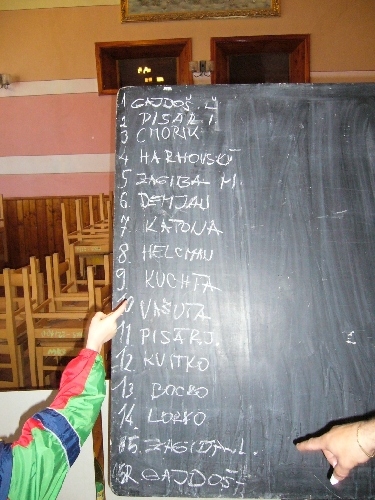 1 GAJDOŠ. Ľ
2 PISÁR I.
3 CMORIK
4 HARHOVSKÝ
5 ZAGIBA M.
6. DEMJAN
7. KATONA
8. HELCMAN
9. KUCHTA
VAŠUTA
11 PISÁR J.
12 KVITKO
13 BOCKO
14 LORKO
15. ZAGIBA L.
GAJDOŠ